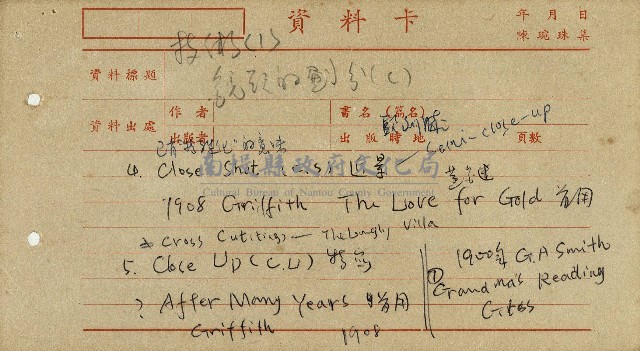 資料卡
年 月 日
陳琬珠集
技術(1)
資料標題
鏡頭的劃分(C)
資料出處
作者
書名（篇名）
出版者
出版時地
頁數
semi-close-up
4. Close Shot (C.S) 近景
南投縣政府文化局
Cultural Bureau of Nantou County Government
1908 Griffith The Love for Gold 首用
Cross Cuttings — The Lonely Villa
5. Close Up (C.U) 特寫
? After Many Years 首用
Griffith 1908
1900年 G.A Smith
① Grandma's Reading